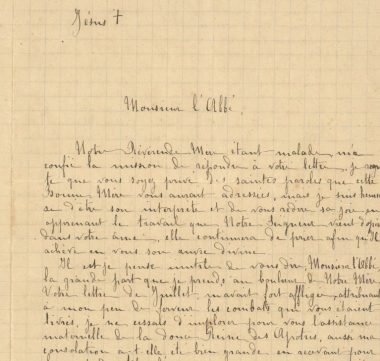 Jésus †
Monsieur l'Abbé,
Notre Révérende Mère étant malade, m'a
confié la mission de répondre à votre lettre, je regret
te que vous soyez privé des saintes paroles que cette
bonne Mère vous aurait adressées, mais je suis heureuse
d'être son interprète et de vous redire sa joie en
apprenant le travail que Notre Seigneur vient d'opérer
dans votre âme, elle continuera de prier afin qu'Il
achève en vous son œuvre divine.
Il est je pense inutile de vous dire, Monsieur l'Abbé
la grande part que je prends au bonheur de Notre Mère.
Votre lettre de Juillet m'avait fort affligée, attribuant
à mon peu de ferveur les combats que vous étaient
livrés, je ne cessais d'implorer pour vous l'assistance
maternelle de la douce Reine des Apôtres, aussi ma
consolation a-t-elle été bien grande en recevant pour